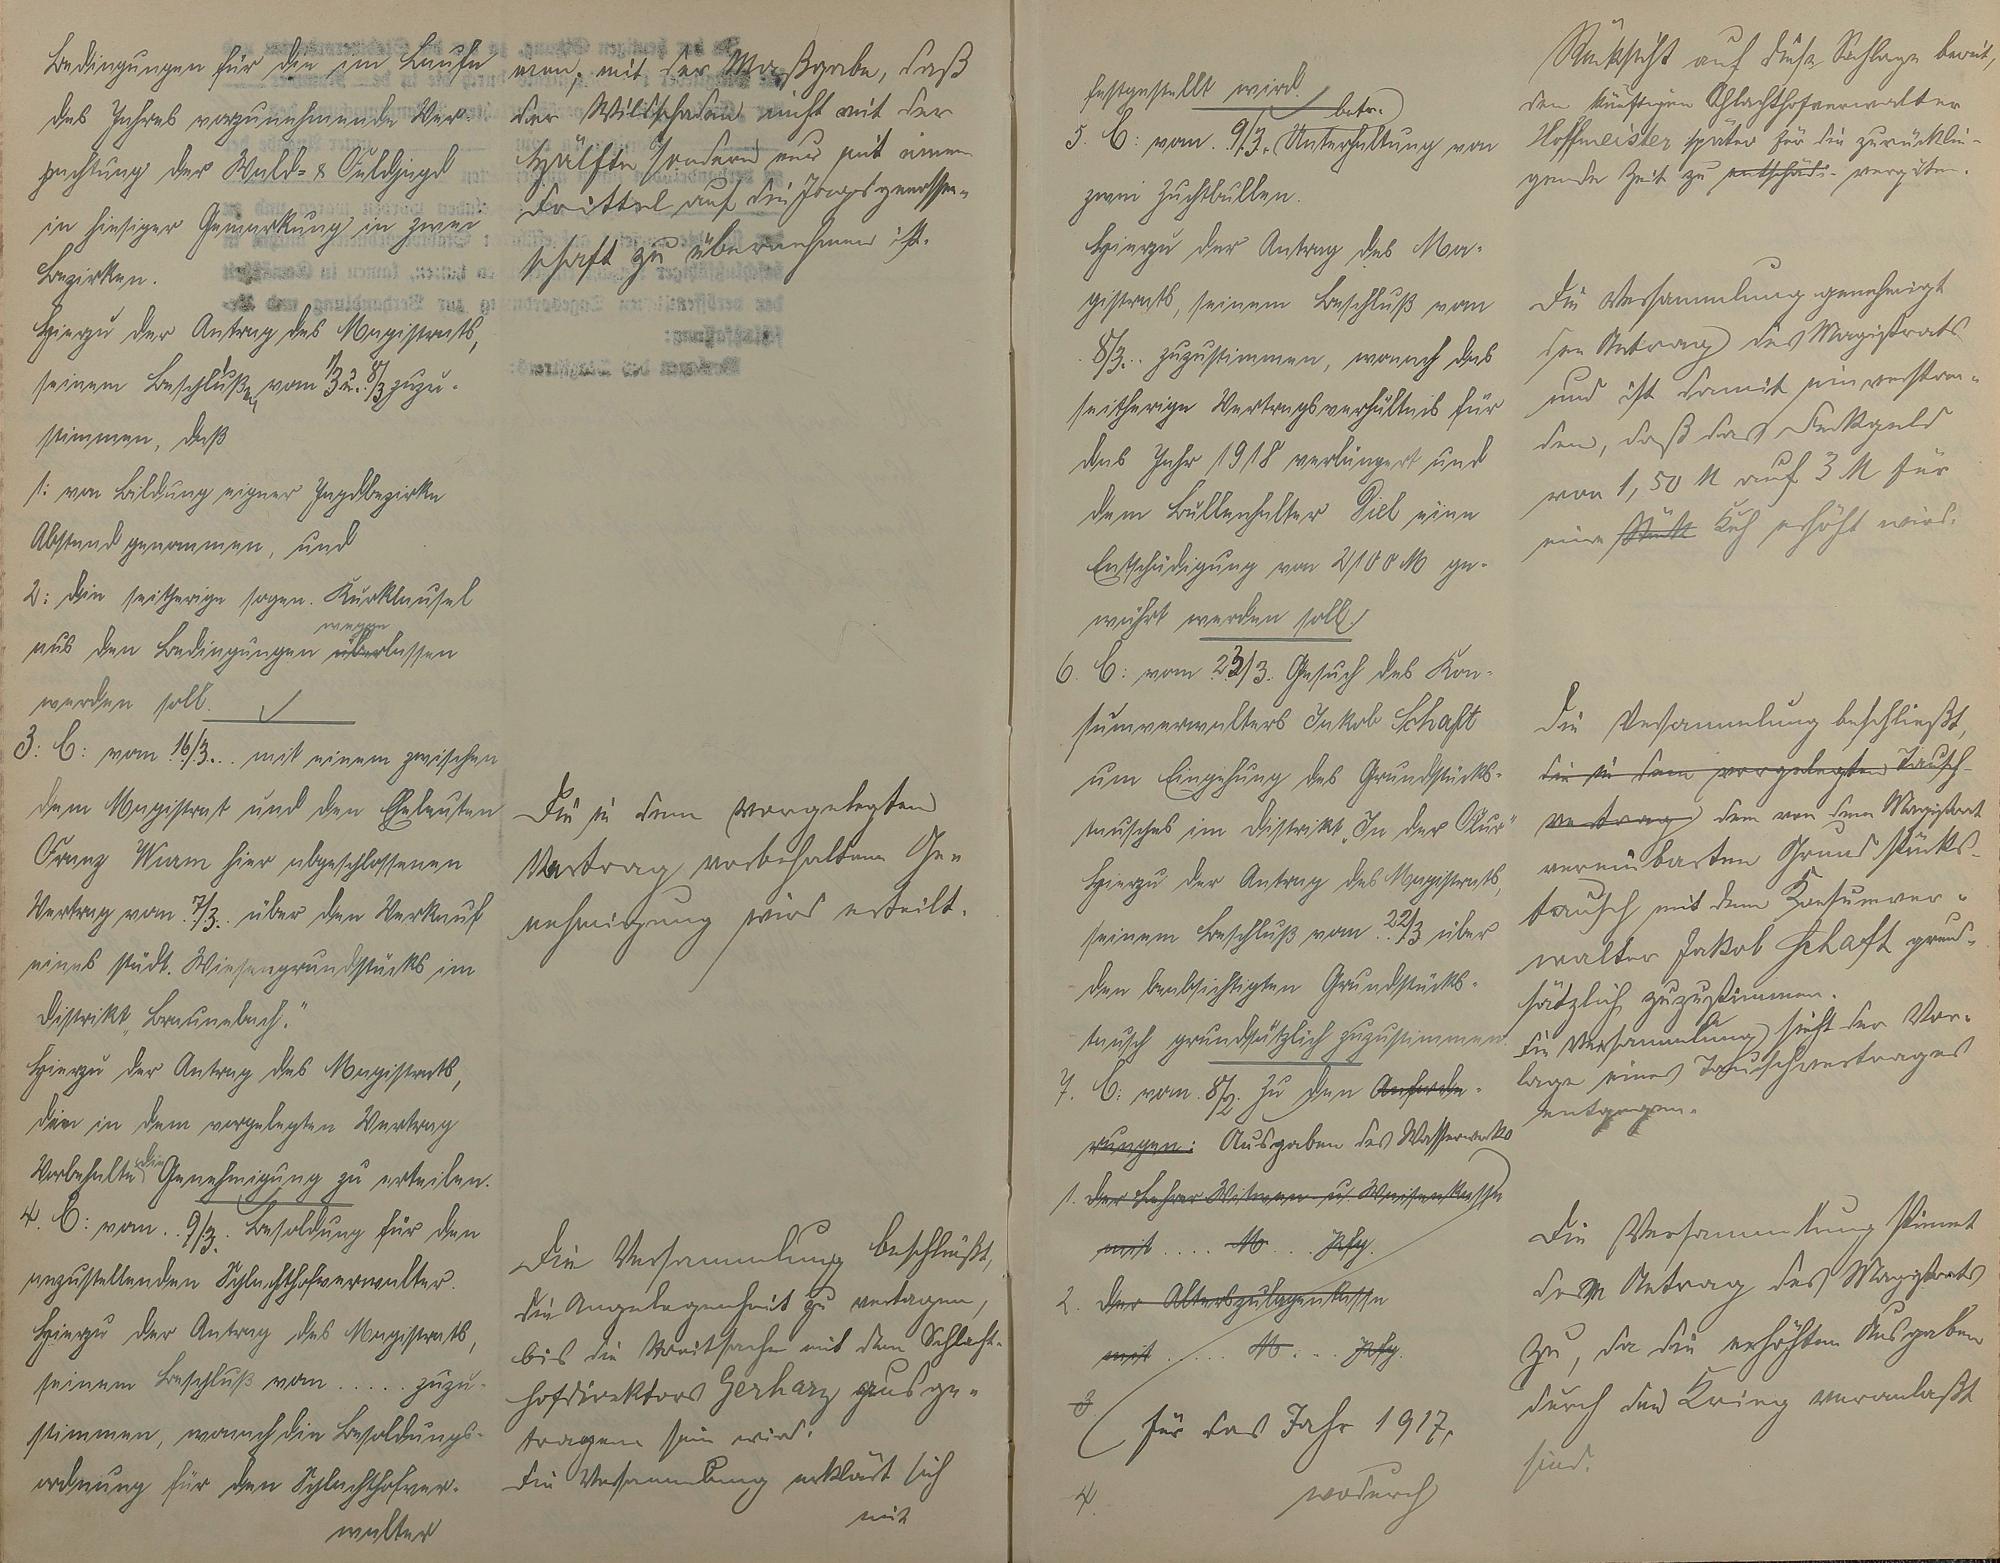 Bedingungen für die im Laufe
des Jahres vorzunehmende Ver-
pachtung der Wald- & Feldjagd
in hiesiger Gemarkung in zwei
Bezirken.
Hierzu der Antrag des Magistrats,
seinem Beschlußen vom 1/3 u. 8/3 zuzu-
stimmen, daß
1: von Bildung eigner Jagdbezirke
Abstand genommen, und
2: die seitherige sogen. Kurklausel
aus den Bedingungen überlassen
wegge
werden soll.
3: C: vom 16/3... mit einem zwischen
dem Magistrat und den Eheleuten
Franz Wurm hier abgeschlossenen
Vertrag vom 7/3. über den Verkauf
eines städt. Wiesengrundstücks im
Distrikt „Braunebach."
Hierzu der Antrag des Magistrats,
die in dem vorgelegten Vertrag
Vorbehaltene Genehmigung zu erteilen.
4. C: vom .. 9/3. Besoldung für den
anzustellenden Schlachthofverwalter.
Hierzu der Antrag des Magistrats,
seinem Beschluß vom ..... zuzu-
stimmen, wonach die Besoldungs-
ordnung für den Schlachthofver-
walter
men, mit der Maßgabe, daß
der Wildschaden nicht mit der
Hälfte sondern nur mit einem
Drittel auf die Jagdgenossen-
schaft zu übernehmen ist.
Die in dem vorgelegten
Vertrag vorbehaltene Ge-
nehmigung wird erteilt.
Die Versammlung beschließt,
die Angelegenheit zu vertagen,
bis die Streitsache mit dem Schlacht-
hofdirektors Gerharz ausge-
tragen sein wird.
Die Versammlung erklärt sich
mit
festgestellt wird.
5. C: vom 9/3. betr. Unterhaltung von
zwei Zuchtbullen.
Hierzu der Antrag des Ma-
gistrats, seinem Beschluß vom
8/3.. zuzustimmen, wonach das
seitherige Vertragsverhältnis für
das Jahr 1918 verlängert und
dem Bullenhalter Diel eine
Entschädigung von 2100 M ge-
währt werden soll.
6. C: vom 23/3. Gesuch des Kon-
sumverwalters Jakob Schaft
um Eingehung des Grundstücks-
tausches im Distrikt „In der Aur"
Hierzu der Antrag des Magistrats,
seinem Beschluß vom 22/3 über
den beabsichtigten Grundstücks-
tausch grundsätzlich zuzustimmen.
7. C: vom 8/2. Zu den Anforde-
rungen: Ausgaben des Wasserwerks
1. der Lehrer Witwen- u. Waisenkasse
mit .... M ... Pfg.
2. der Alterszulagenkasse
mit ..... M ... Pfg.
3
für das Jahr 1917,
4. wodurch
Rücksicht auf diese Sachlage bereit,
den künftigen Schlachthofverwalter
Hoffmeister später für die zurücklie-
gende Zeit zu entschädi- vergüten.
Die Versammlung genehmigt
den Antrag des Magistrats
und ist damit einverstan-
den, daß das Deckgeld
von 1,50 M auf 3 M für
eine Stück Kuh erhöht wird.
Die Versammlung beschließt,
die in dem vorgelegten Tausch-
vertrag dem von dem Magistrat
vereinbarten Grundstücks-
tausch mit dem Konsumver-
walter Jakob Schaft grund-
sätzlich zuzustimmen.
Die Versammlung sieht der Vor-
lage eines Tauschvertrages
entgegen.
Die Versammlung stimmt
dem Antrag des Magistrats
zu, da die erhöhten Ausgaben
durch den Krieg veranlaßt
sind.